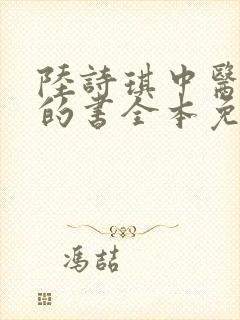 陸詩琪中醫
的書全本免
馮喆